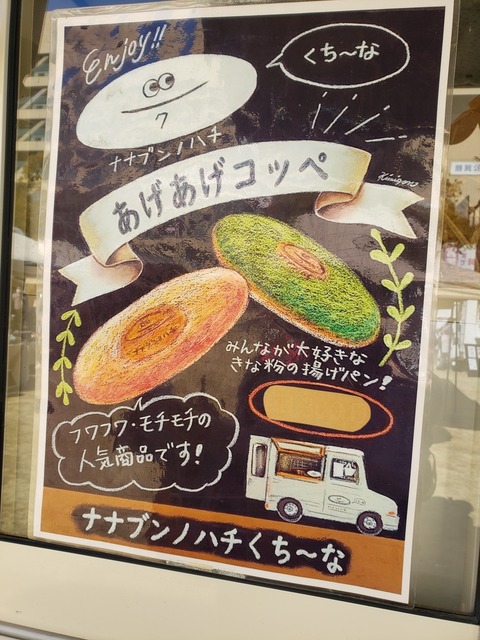 Enjoy!!
くち〜な
7
ナナブンノハチ
あげあげコッペ
ナナブンノハチ
みんなが大好きな
きな粉の揚げパン!
フワフワ・モチモチの
人気商品です!
ナナブンノハチくち〜な